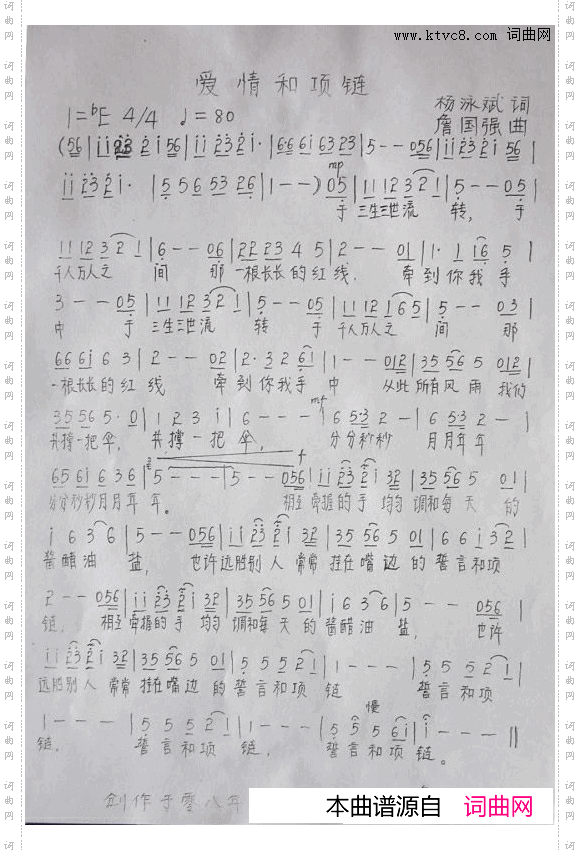 www.ktvc8.com 词曲网
爱情和项链
1=♭E 4/4 ♩=80
杨泳斌词
詹国强曲
(56|1123 2156|1123 21·|6661 6323|5--056|1123 2156|
mp
1123 21·|556 53 26|1--)05|1112 321|5--05|
手 三生三世流 转, 手
1112 321|6--06|2223 45|2--01|1·1 16 5|
千人万人之 间 那 一根长长的红线, 牵到你我手
3--05|1112 321|5--05|1112 165|5--03|
中 手 三生三世流 转 手 千人万人之 间 那
6661 63|2--02|2·32 61|1--012|3556 5 012|
一根长长的红 线 牵到你我手 中 从此所有风雨 我们
mf
3556 5·0|1 2 3 i|6---|6 5·3 2-|6 5·3 2-|
共撑一把伞, 共撑一把伞, 分分秒秒 月月年年
6561 636|5---|5--056|1123 21 32|3556 5 01|
分分秒秒月月年 年。 相互牵握的手 均匀调和每 天 的
i 6 36|5--056|1123 21 32|3556 5 01|6 6 i 32|
酱醋油 盐, 也许远胜别人 常常 挂在嘴边 的誓言和项
2--056|1123 21 32|3556 5 01|i 6 36|5--056|
链, 相互牵握的手 均匀 调和每 天 的酱醋油 盐, 也许
1123 21 32|3556 5 01|5 5 5 21|1---|5 5 5 21|
远胜别人 常常 挂在嘴边 的誓言和项 链 誓言和项
慢
1---|5 5 5 21|1---|5 5 5 6i|i---‖
链, 誓言和项 链, 誓言和项 链。
创作于零八年
本曲谱源自 词曲网
词曲网